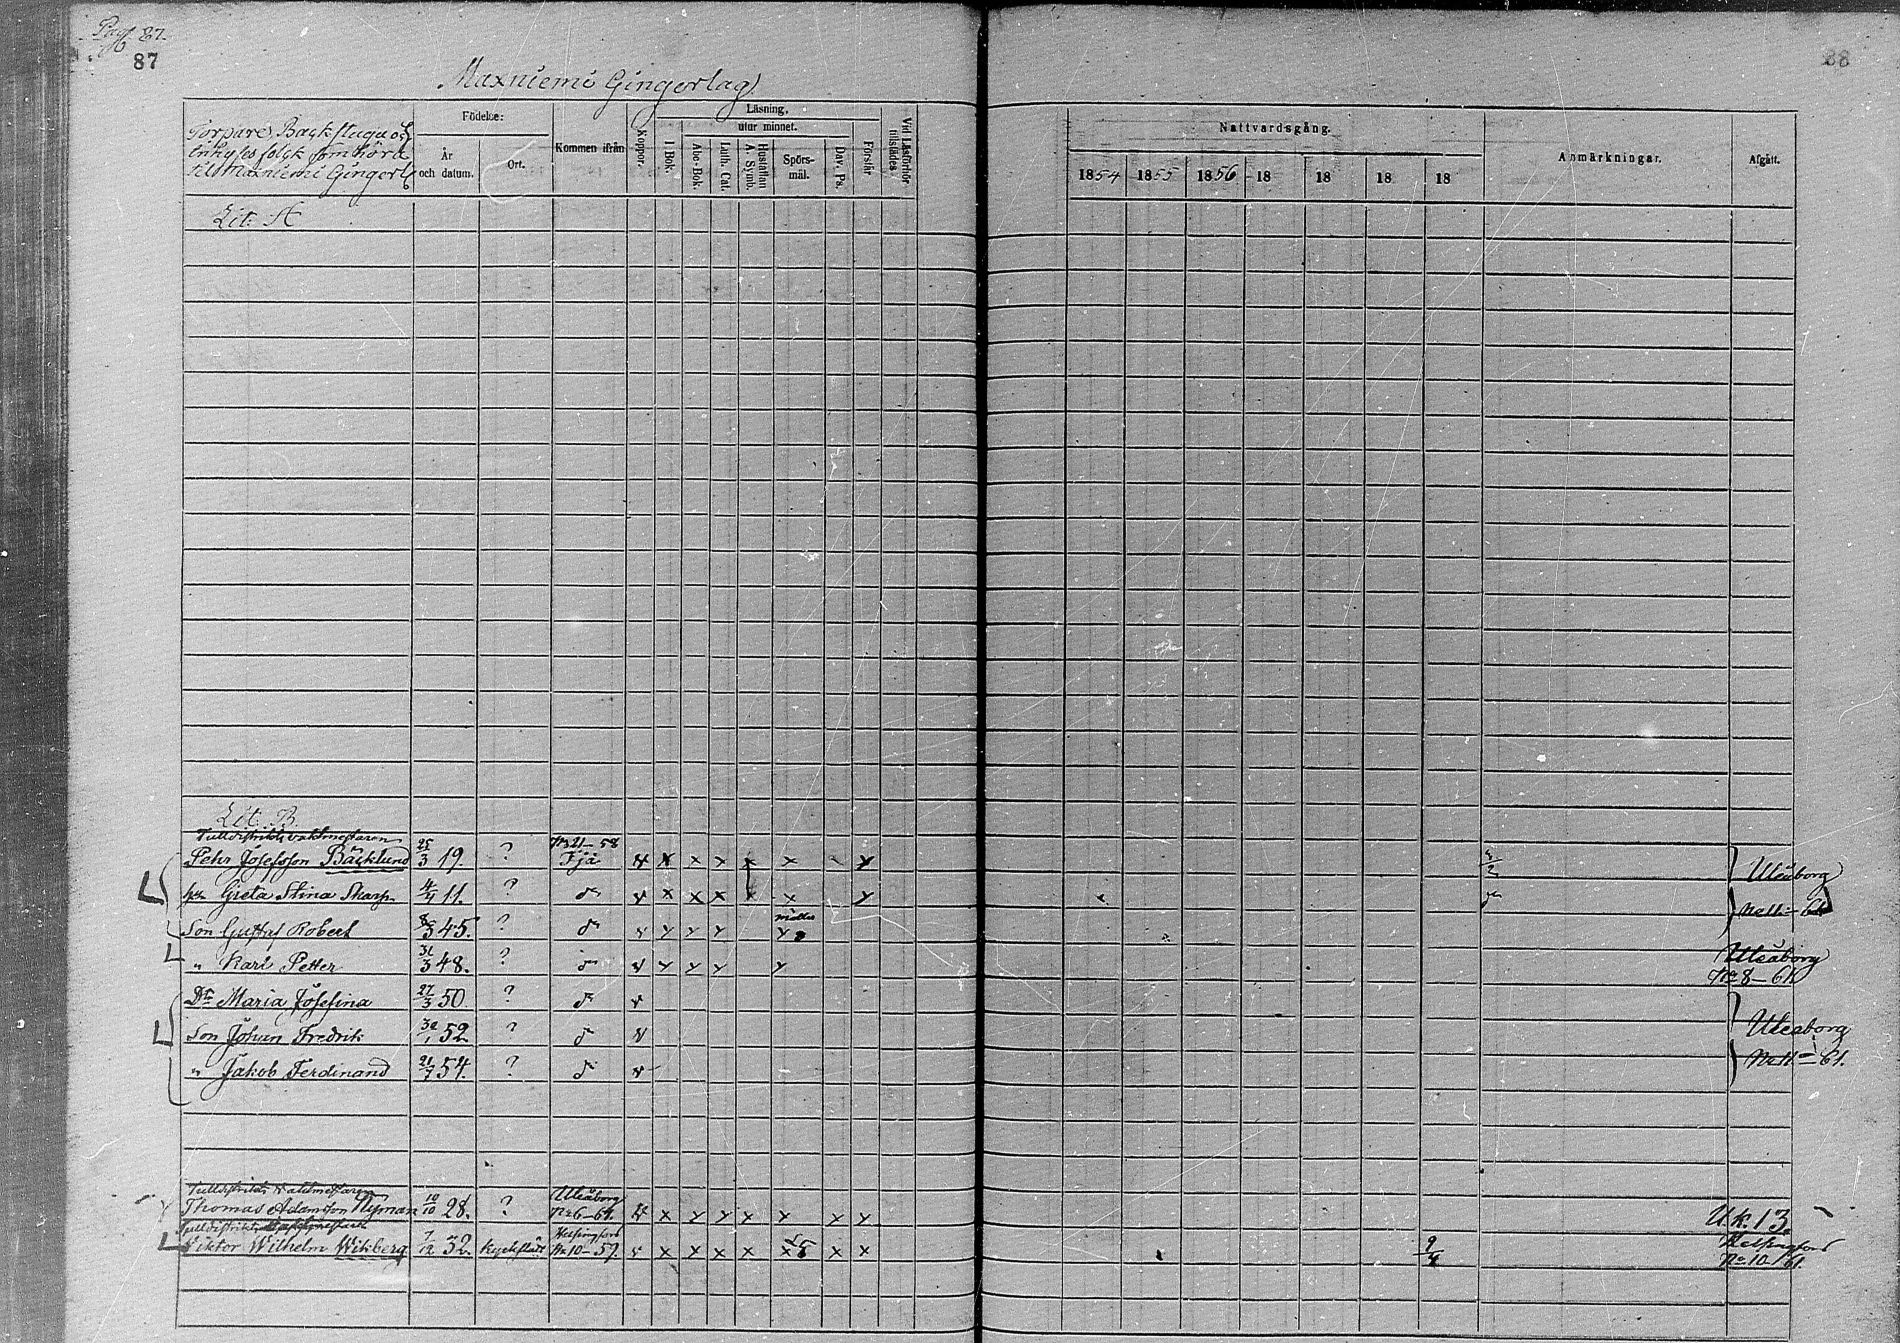 Pag 87.
87
88
Maxniemi Gingerlag
Torpare, Backstugu och
Inhyses folck som höra
till Maxniemi Gingerl.
Födelse:
År
och datum.
Ort.
Kommen ifrån
Koppor.
Läsning,
utur minnet.
I Bok.
Abc-Bok.
Luth. Cat.
Hustaflan
A. Symb.
Spörs-
mål.
Dav. Ps.
Förstår
Vid Läsförhör
tillstädes.
Nattvardsgång.
1854 1855 1856 18 18 18 18
Anmärkningar.
Afgått.
Lit. A
Lit. B.
Tulldistrikts vaktmestaren
Pehr Josefsson Bäcklund 25/3 19. ? No 21-58 Ijå
Uleåborg
hu Greta Stina Skarp 4/4 11. ?
No 11-61
Son Gustaf Robert 8/3 45. ?
" Karl Petter 31/3 48. ?
Uleåborg
No 8-61
Dr Maria Josefina 27/3 50 ?
Son Johan Fredrik 30/1 52 ?
Uleåborg
" Jakob Ferdinand 21/7 54. ?
No 11-61.
Tulldistrikts vaktmestaren
Thomas Adamsson Nyman 10/10 28. ? Uleåborg No 6-61.
U.k. 13
Tulldistrikts
Viktor Wilhelm Wikberg 7/12 32. Kyrkslätt Helsingfors No 10-59. 9/4
Helsingfors
No 10-61.